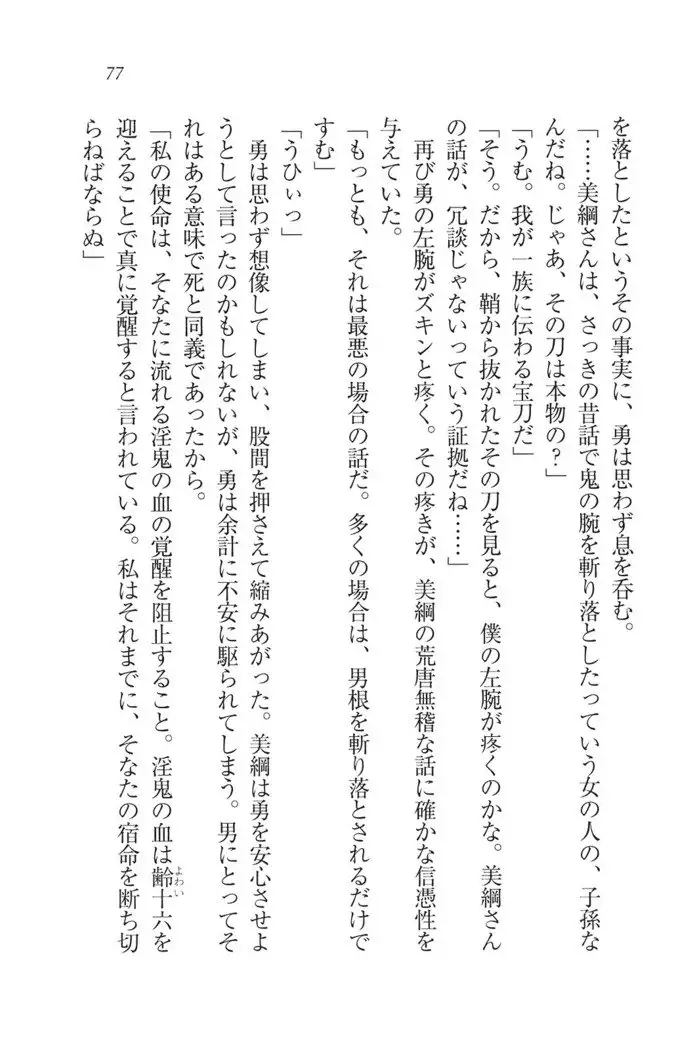 77
を落としたというその事実に、勇は思わず息を呑む。
「……美綱さんは、さっきの昔話で鬼の腕を斬り落としたっていう女の人の、子孫な
んだね。じゃあ、その刀は本物の？」
「うむ。我が一族に伝わる宝刀だ」
「そう。だから、鞘から抜かれたその刀を見ると、僕の左腕が疼くのかな。美綱さん
の話が、冗談じゃないっていう証拠だね……」
再び勇の左腕がズキンと疼く。その疼きが、美綱の荒唐無稽な話に確かな信憑性を
与えていた。
「もっとも、それは最悪の場合の話だ。多くの場合は、男根を斬り落とされるだけで
すむ」
「うひぃっ」
勇は思わず想像してしまい、股間を押さえて縮みあがった。美綱は勇を安心させよ
うとして言ったのかもしれないが、勇は余計に不安に駆られてしまう。男にとってそ
れはある意味で死と同義であったから。
「私の使命は、そなたに流れる淫鬼の血の覚醒を阻止すること。淫鬼の血は齢十六を
よわい
迎えることで真に覚醒すると言われている。私はそれまでに、そなたの宿命を断ち切
らねばならぬ」